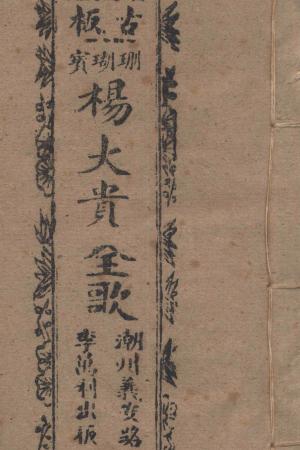 古板
珊瑚寶
楊大貴
全歌
潮州義安路
李萬利出板